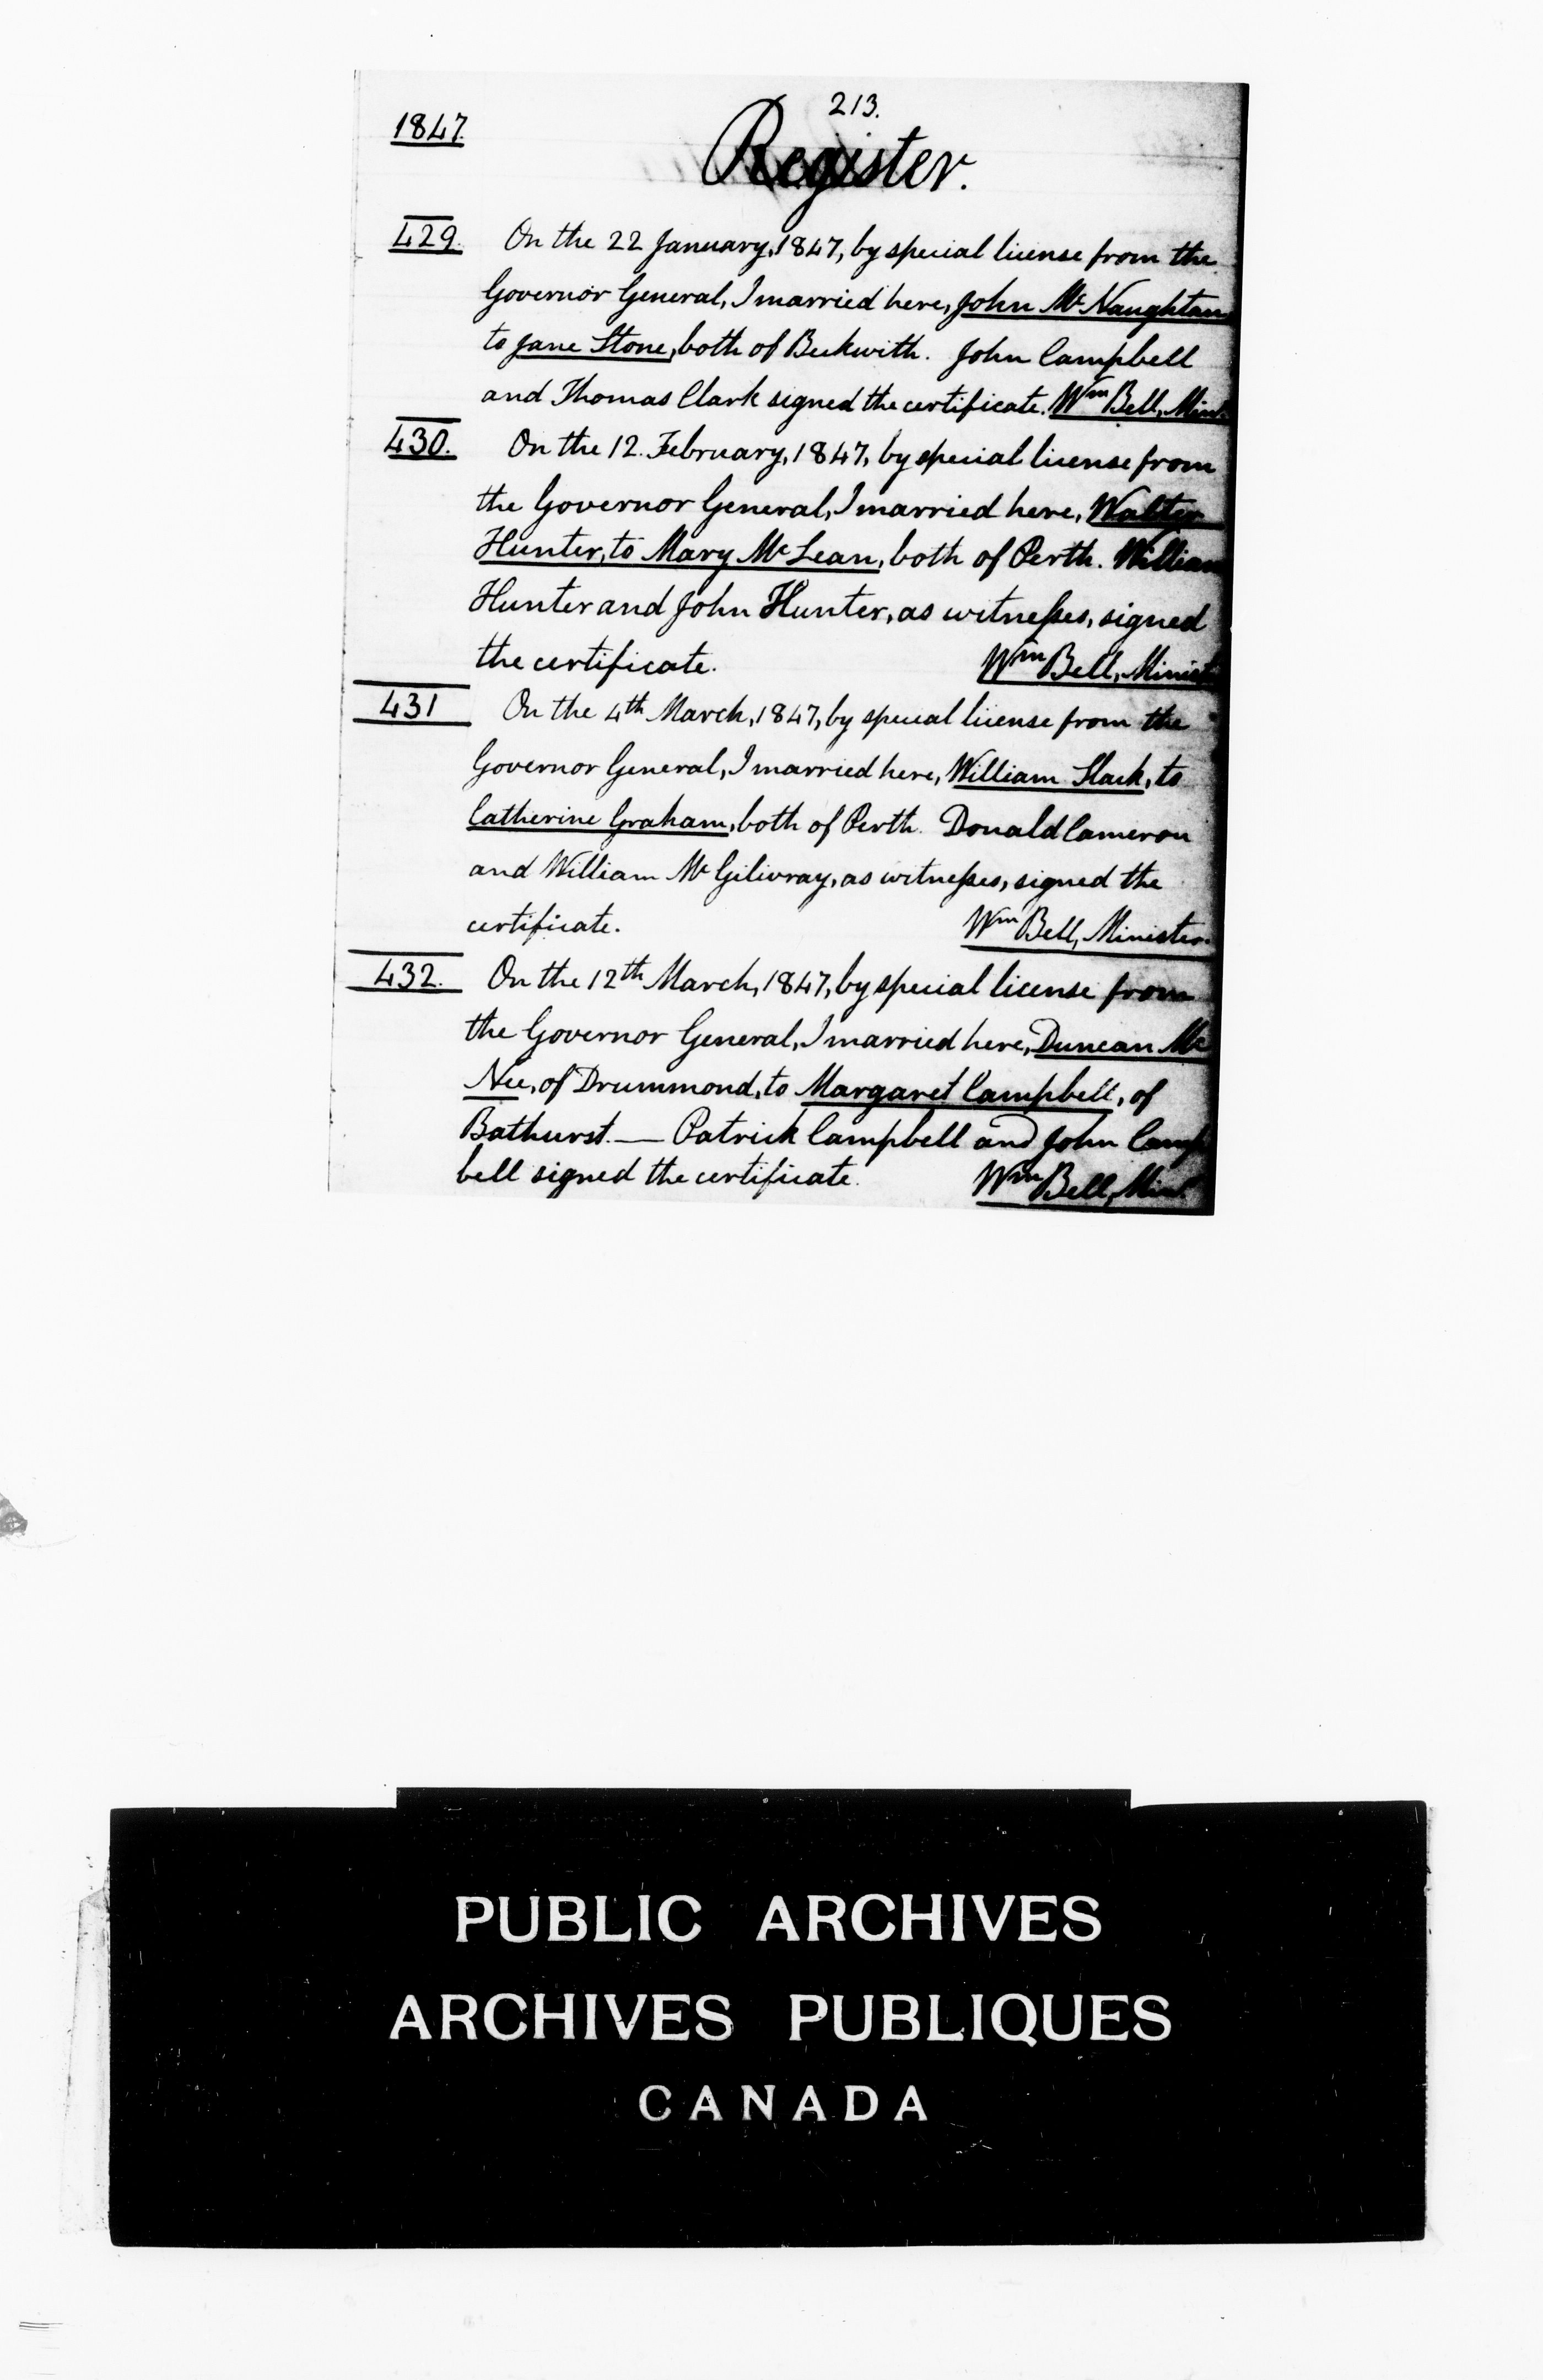 213.
1847.
Register.
429. On the 22 January, 1847, by special license from the
Governor General, I married here, John Mc Naughtan
to Jane Stone, both of Beckwith. John Campbell
and Thomas Clark signed the certificate. Wm Bell, Minr.
430. On the 12. February, 1847, by special license from
the Governor General, I married here, Walter
Hunter, to Mary Mc Lean, both of Perth. William
Hunter and John Hunter, as witnesses, signed
the certificate. Wm Bell, Minist
431 On the 4th March, 1847, by special license from the
Governor General, I married here, William Slack, to
Catherine Graham, both of Perth. Donald Cameron
and William Mc Gilivray, as witnesses, signed the
certificate. Wm Bell, Minister.
432. On the 12th March, 1847, by special license from
the Governor General, I married here, Duncan Mc
Nee, of Drummond, to Margaret Campbell, of
Bathurst. — Patrick Campbell and John Camp
bell signed the certificate. Wm Bell, Minr.
PUBLIC ARCHIVES
ARCHIVES PUBLIQUES
CANADA